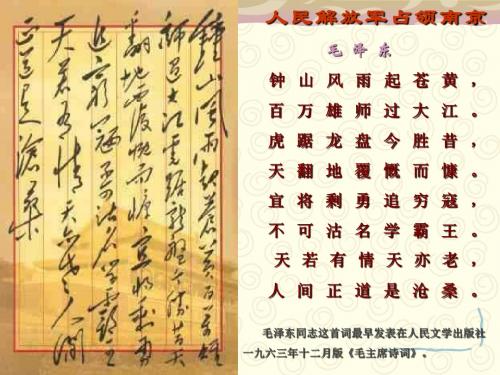 鍾山風雨起蒼黃百萬雄
師過大江虎踞龍盤今勝昔天
翻地覆慨而慷宜將剩勇
追窮寇不可沽名學霸王
天若有情天亦老人间
正道是滄桑
人民解放军占领南京
毛泽东
钟山风雨起苍黄，
百万雄师过大江。
虎踞龙盘今胜昔，
天翻地覆慨而慷。
宜将剩勇追穷寇，
不可沽名学霸王。
天若有情天亦老，
人间正道是沧桑。
毛泽东同志这首词最早发表在人民文学出版社
一九六三年十二月版《毛主席诗词》。